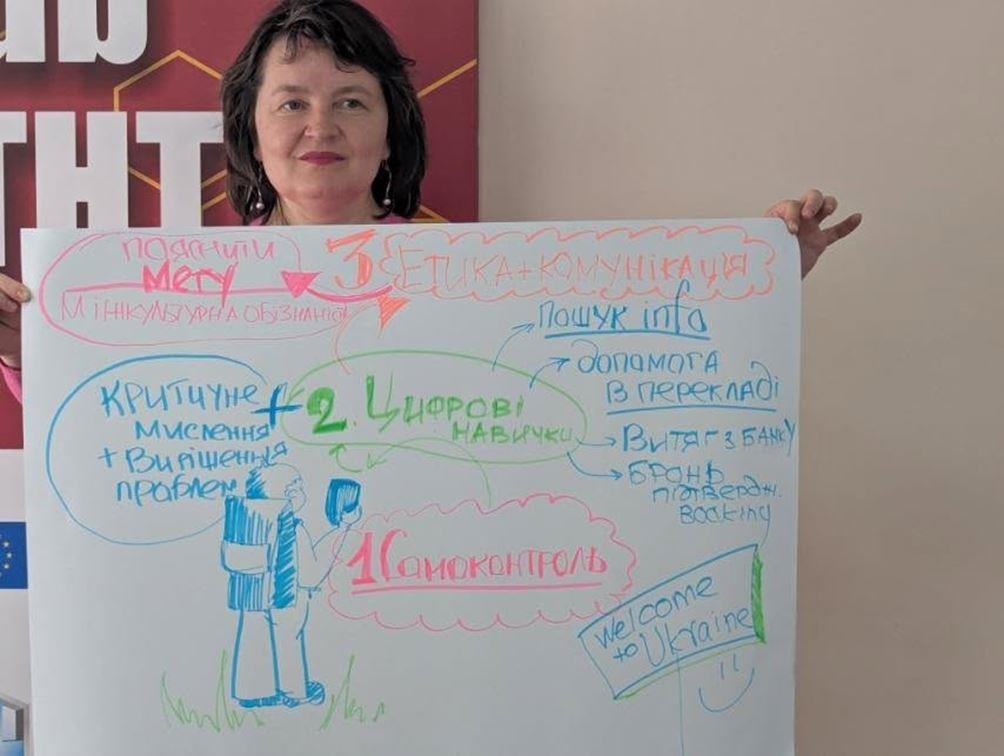 ТНТ
ПОЯСНИТИ
МЕТУ
МІЖКУЛЬТУРНА ОБІЗНАНІСТЬ
3 ЕТИКА + КОМУНІКАЦІЯ
ПОШУК info
ДОПОМОГА
В ПЕРЕКЛАДІ
КРИТИЧНЕ
МИСЛЕННЯ
+ ВИРІШЕННЯ
ПРОБЛЕМ
+
2. ЦИФРОВІ
НАВИЧКИ
ВИТЯГ З БАНКУ
БРОНЬ
ПІДТВЕРДЖ.
BOOKING
1 Самоконтроль
Welcome
to Ukraine